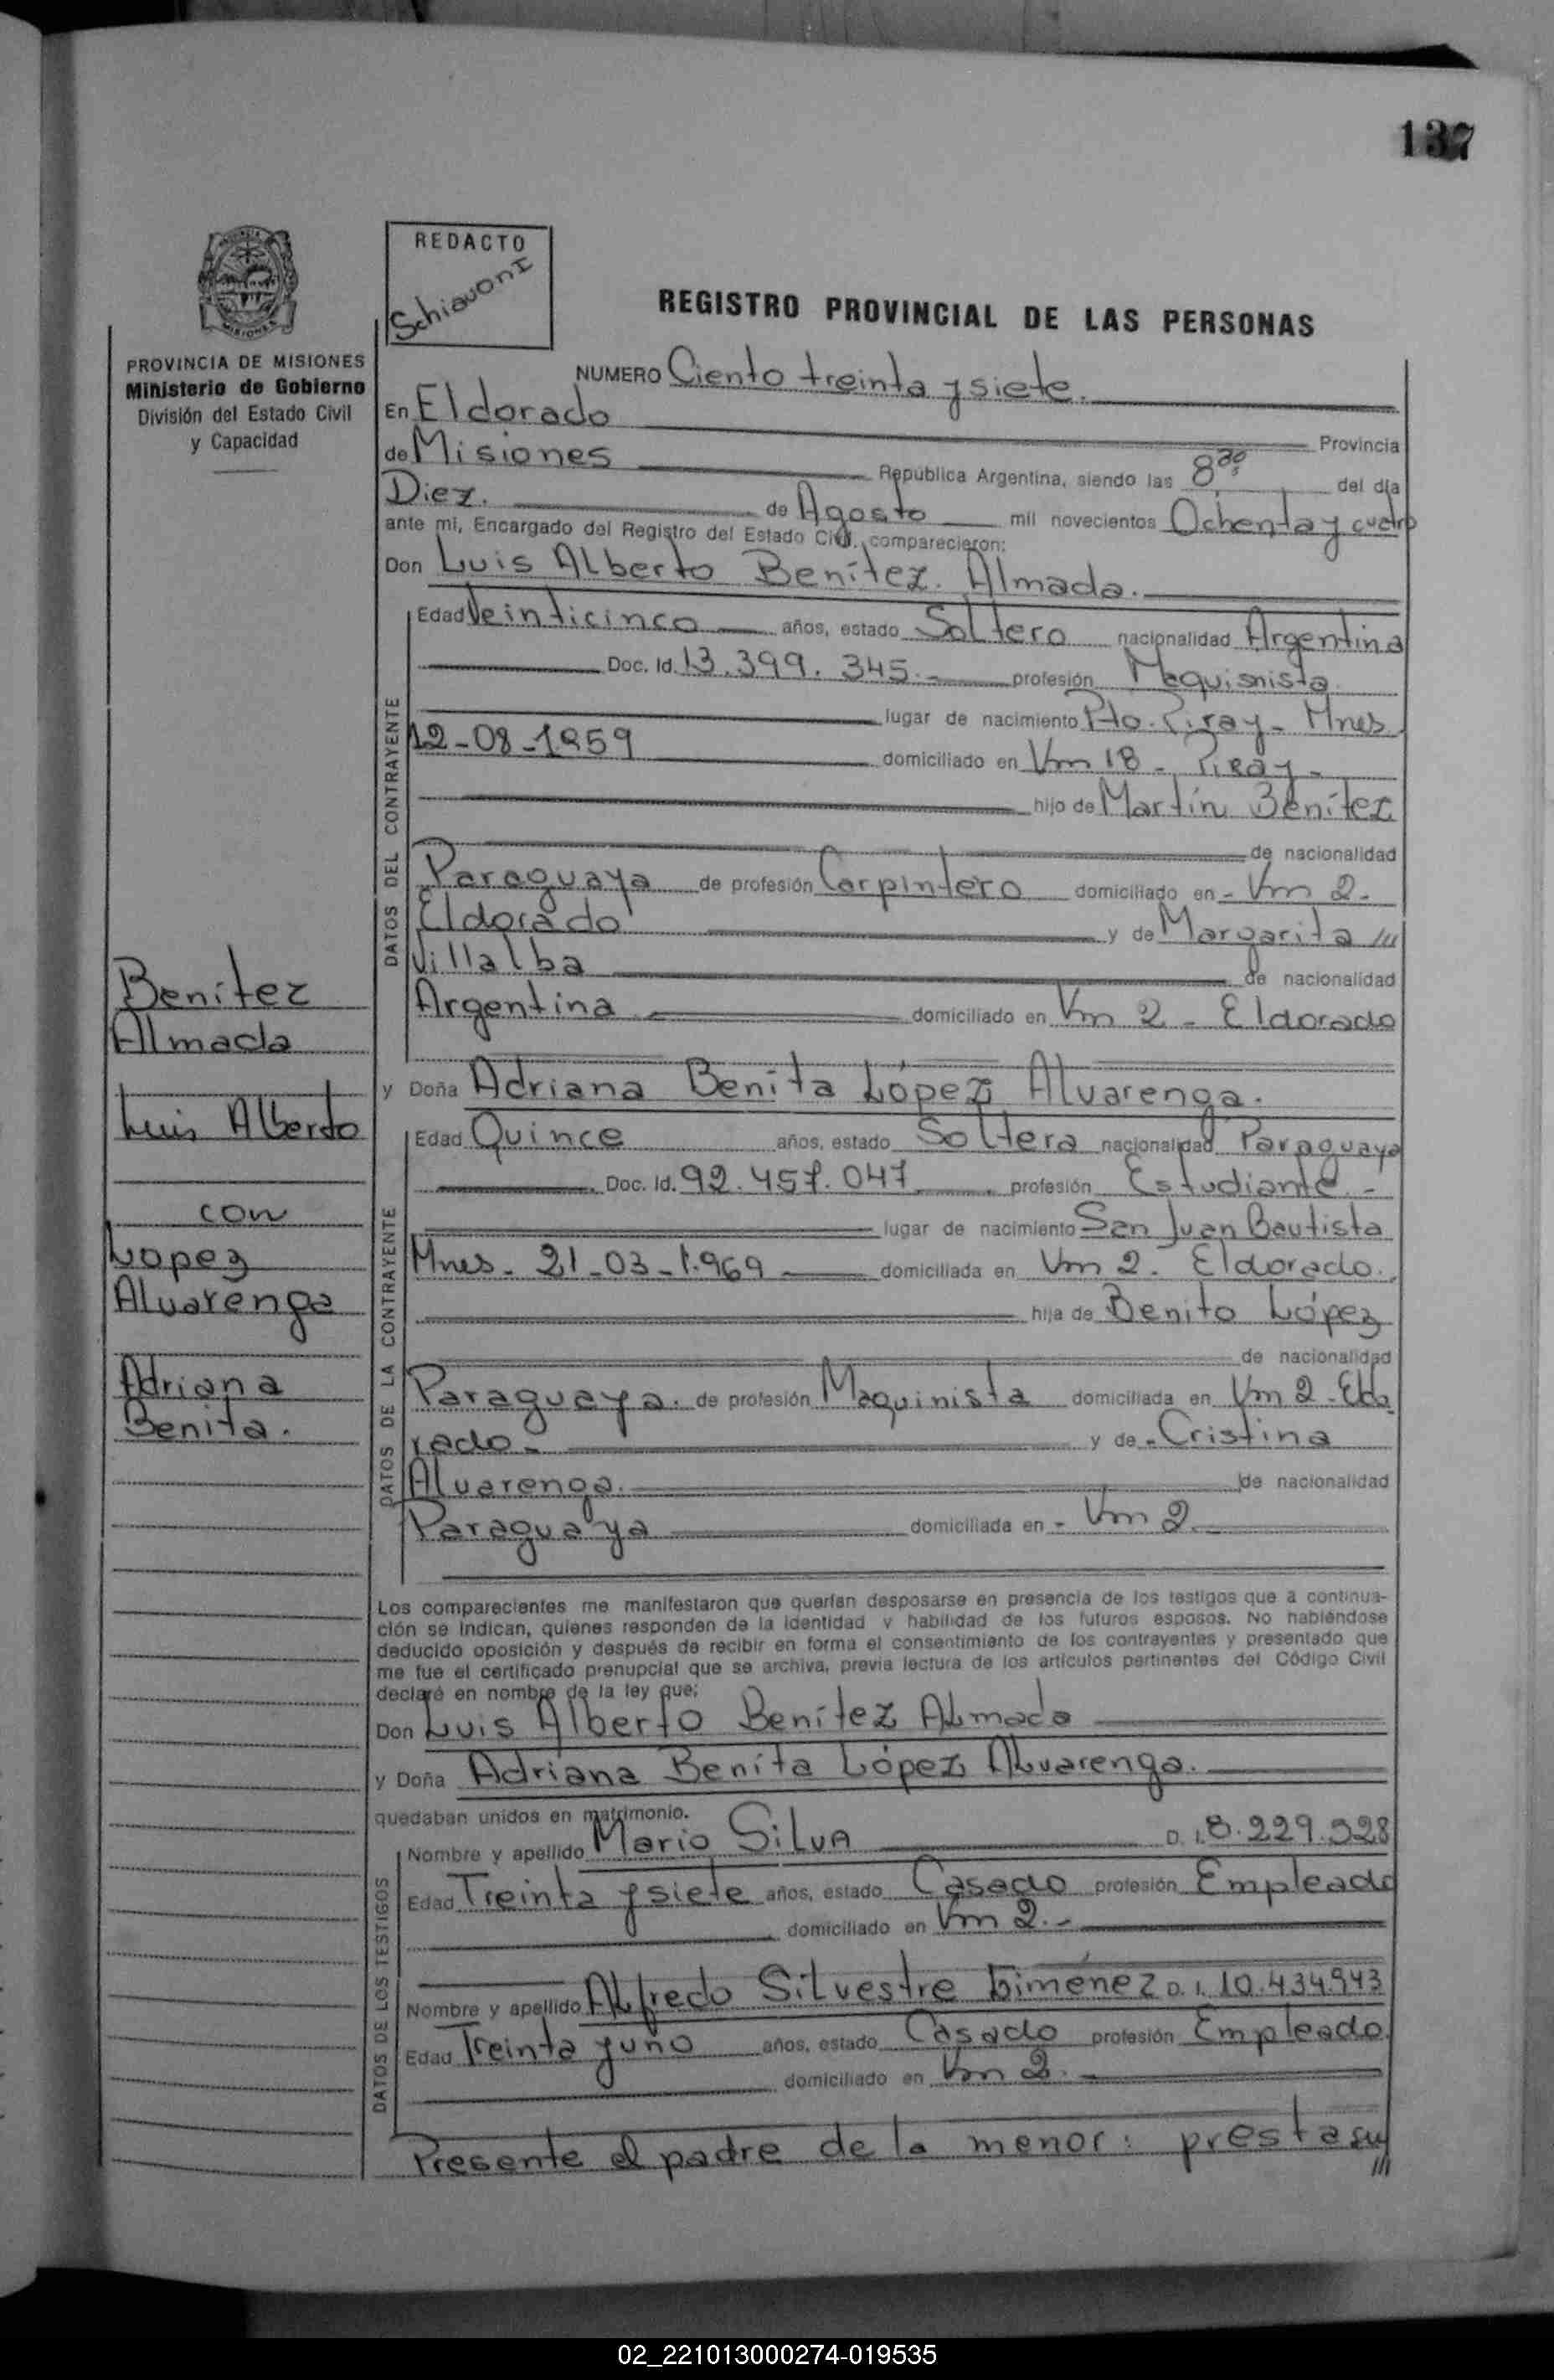 137
REDACTO
Schiavoni
REGISTRO PROVINCIAL DE LAS PERSONAS
PROVINCIA DE MISIONES
Ministerio de Gobierno
División del Estado Civil
y Capacidad
NUMERO Ciento treinta y siete.
En Eldorado Provincia
de Misiones República Argentina, siendo las 8 30 del día
Diez. de Agosto mil novecientos Ochenta y cuatro
ante mi, Encargado del Registro del Estado Civil, comparecieron:
Don Luis Alberto Benítez Almada.
DATOS DEL CONTRAYENTE
Edad Veinticinco años, estado Soltero nacionalidad Argentina
Doc. Id. 13.399.345.- profesión Maquinista
lugar de nacimiento Pto. Piray - Mnes
12-08-1959 domiciliado en Km 18 - Piray -
hijo de Martín Benítez
de nacionalidad
Paraguaya de profesión Carpintero domiciliado en - Km 2.
Eldorado y de Margarita
Villalba de nacionalidad
Argentina domiciliado en Km 2 - Eldorado
y Doña Adriana Benita López Alvarenga.
DATOS DE LA CONTRAYENTE
Edad Quince años, estado Soltera nacionalidad Paraguaya
Doc. Id. 92.457.047 profesión Estudiante -
lugar de nacimiento San Juan Bautista
Mnes - 21-03-1.969 domiciliada en Km 2. Eldorado.
hija de Benito López
de nacionalidad
Paraguaya. de profesión Maquinista domiciliada en Km 2 - Eldo
rado - y de - Cristina
Alvarenga. de nacionalidad
Paraguaya domiciliada en - Km 2
Benítez
Almada
Luis Alberto
con
Lopez
Alvarenga
Adriana
Benita.
Los comparecientes me manifestaron que querían desposarse en presencia de los testigos que a continua-
ción se indican, quienes responden de la identidad y habilidad de los futuros esposos. No habiéndose
deducido oposición y después de recibir en forma el consentimiento de los contrayentes y presentado que
me fue el certificado prenupcial que se archiva, previa lectura de los artículos pertinentes del Código Civil
declaré en nombre de la ley que:
Don Luis Alberto Benítez Almada
y Doña Adriana Benita López Alvarenga.
quedaban unidos en matrimonio.
DATOS DE LOS TESTIGOS
Nombre y apellido Mario Silva D. I. 8.229.928
Edad Treinta y siete años, estado Casado profesión Empleado
domiciliado en Km 2.-
Nombre y apellido Alfredo Silvestre Giménez D. I. 10.434.943
Edad Treinta y uno años, estado Casado profesión Empleado.
domiciliado en Km 2.
Presente el padre de la menor: presta su
02_221013000274-019535